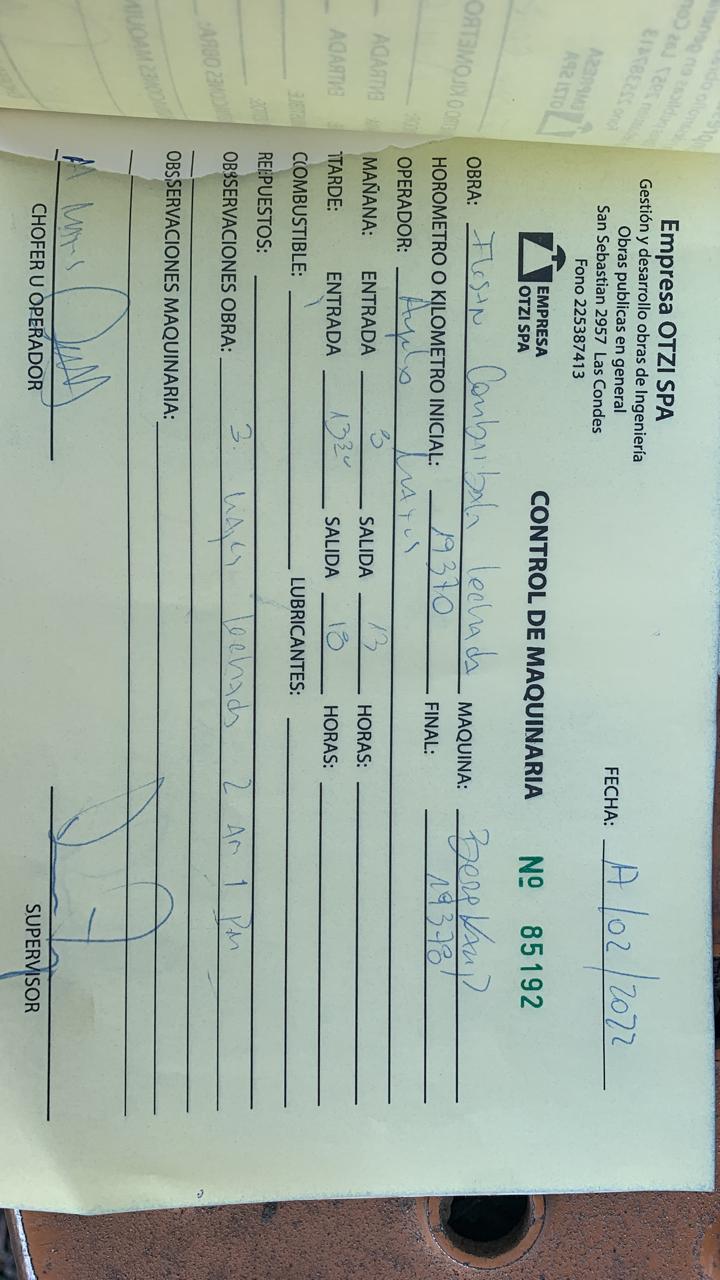 Empresa OTZI SPA
Gestión y desarrollo obras de Ingeniería
Obras publicas en general
San Sebastian 2957 Las Condes
Fono 225387413
EMPRESA
OTZI SPA
FECHA: /02/2022
CONTROL DE MAQUINARIA Nº 85192
OBRA: lechada MAQUINA: BergKamp
HOROMETRO O KILOMETRO INICIAL: 19370 FINAL: 19378
OPERADOR:
MAÑANA: ENTRADA 8 SALIDA 13 HORAS:
TARDE: ENTRADA 13 30 SALIDA 18 HORAS:
COMBUSTIBLE: LUBRICANTES:
REPUESTOS:
OBSERVACIONES OBRA: 3. lechada 2 AM 1 PM
OBSERVACIONES MAQUINARIA:
CHOFER U OPERADOR
SUPERVISOR